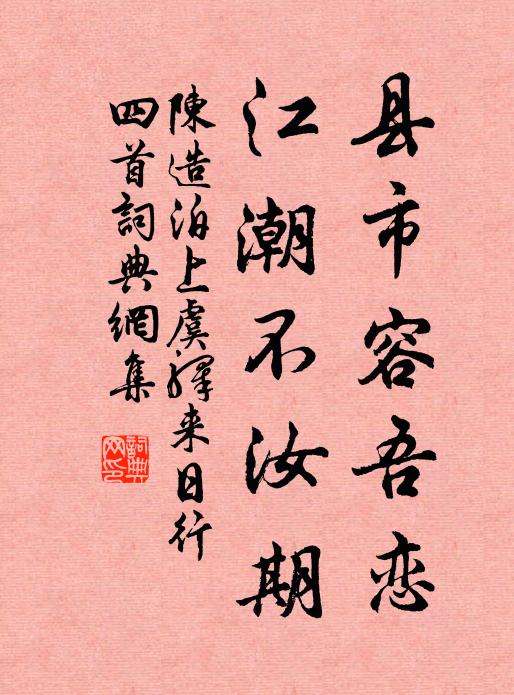 县市容吾恋
江潮不汝期
陳造泊上虞驛来日行
四首詞典網集
詞典網印